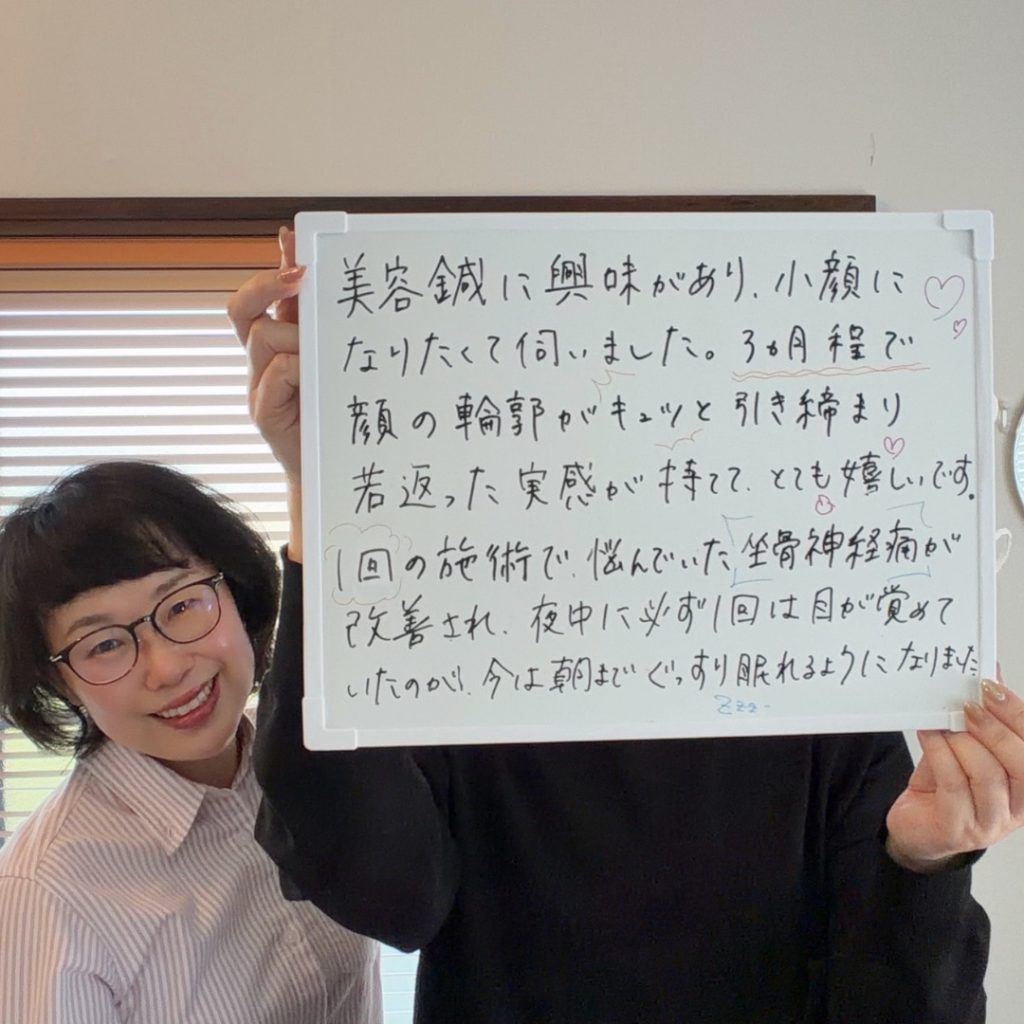 美容鍼に興味があり、小顔に
なりたくて伺いました。3ヵ月程で
顔の輪郭がキュッと引き締まり
若返った実感が持てて、とても嬉しいです。
1回の施術で、悩んでいた坐骨神経痛が
改善され、夜中に必ず1回は目が覚めて
いたのが、今は朝までぐっすり眠れるようになりました
Zzz..